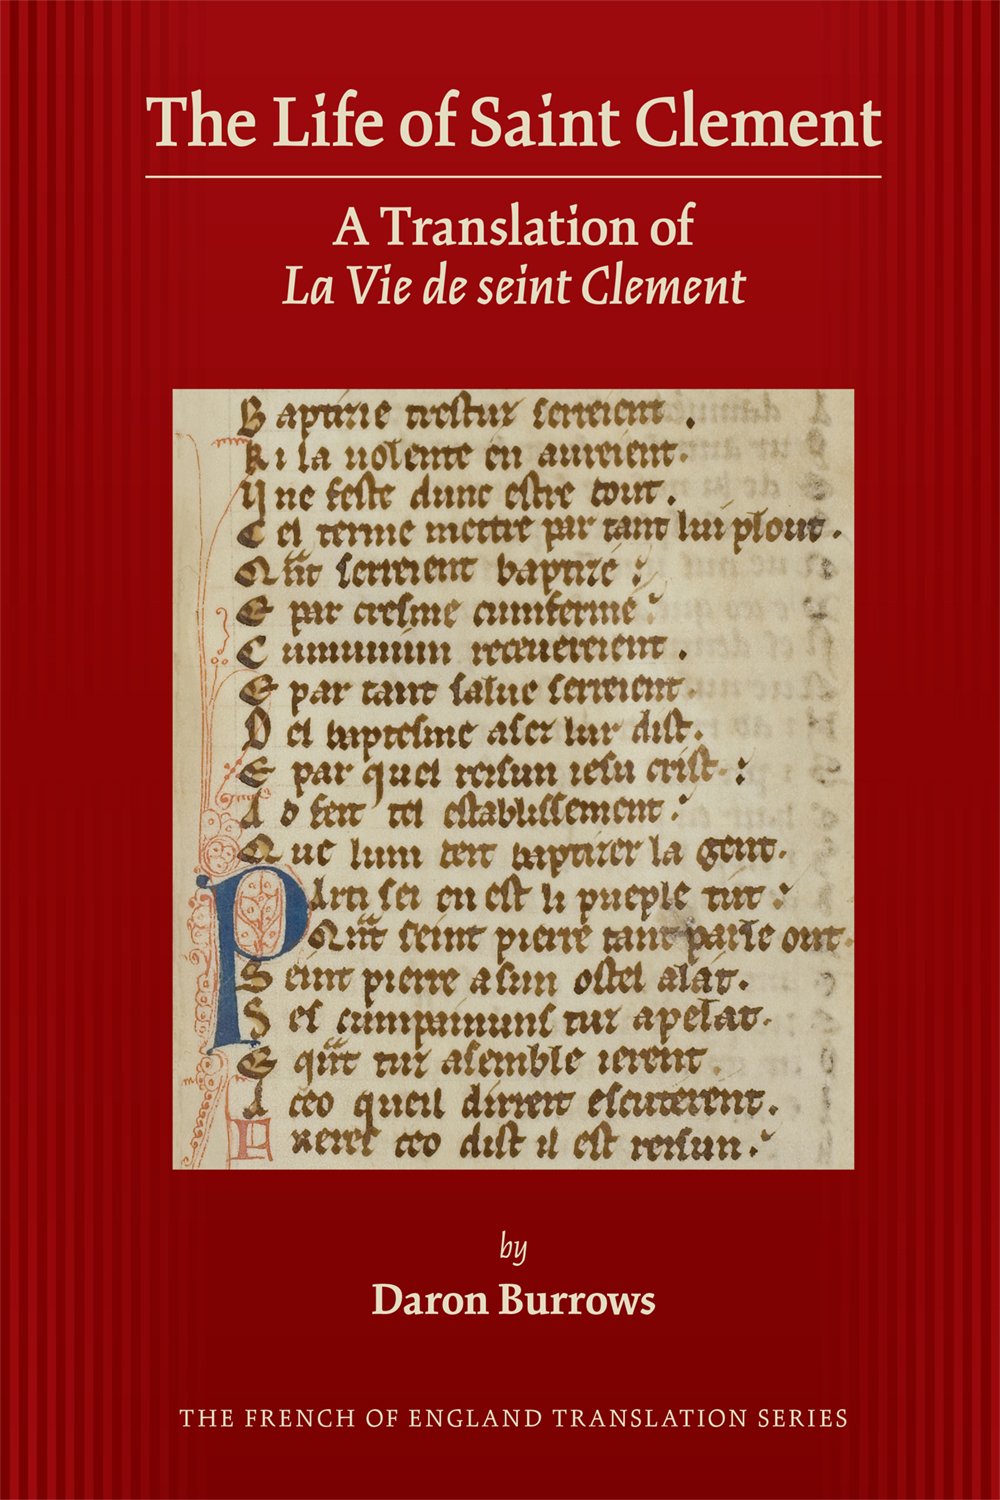 The Life of Saint Clement
A Translation of
La Vie de seint Clement
Baptizie trestuz serreient .
Ki la uolente en aureient.
Une feste dunc estre dout.
Cel terme mettre par tant lui plout.
Qant serreient baptizé
E par cresme cumfermé
Cumuniun receuereient .
E par tant salue serreient.
Del baptesme asez lur dist.
E par quel reisun iesu crist.
Ad feit tel establissement
Que lum deit baptizer la gent.
Parti sei en est li pueple tut
Qant seint pierre tant parle out.
Seint pierre a sun ostel alat.
Ses cumpainuns tuz apelat.
E qant tuz asemble ierent
A ceo queil dirreit escuterent.
Freres ceo dist il est reisun.
by
Daron Burrows
THE FRENCH OF ENGLAND TRANSLATION SERIES